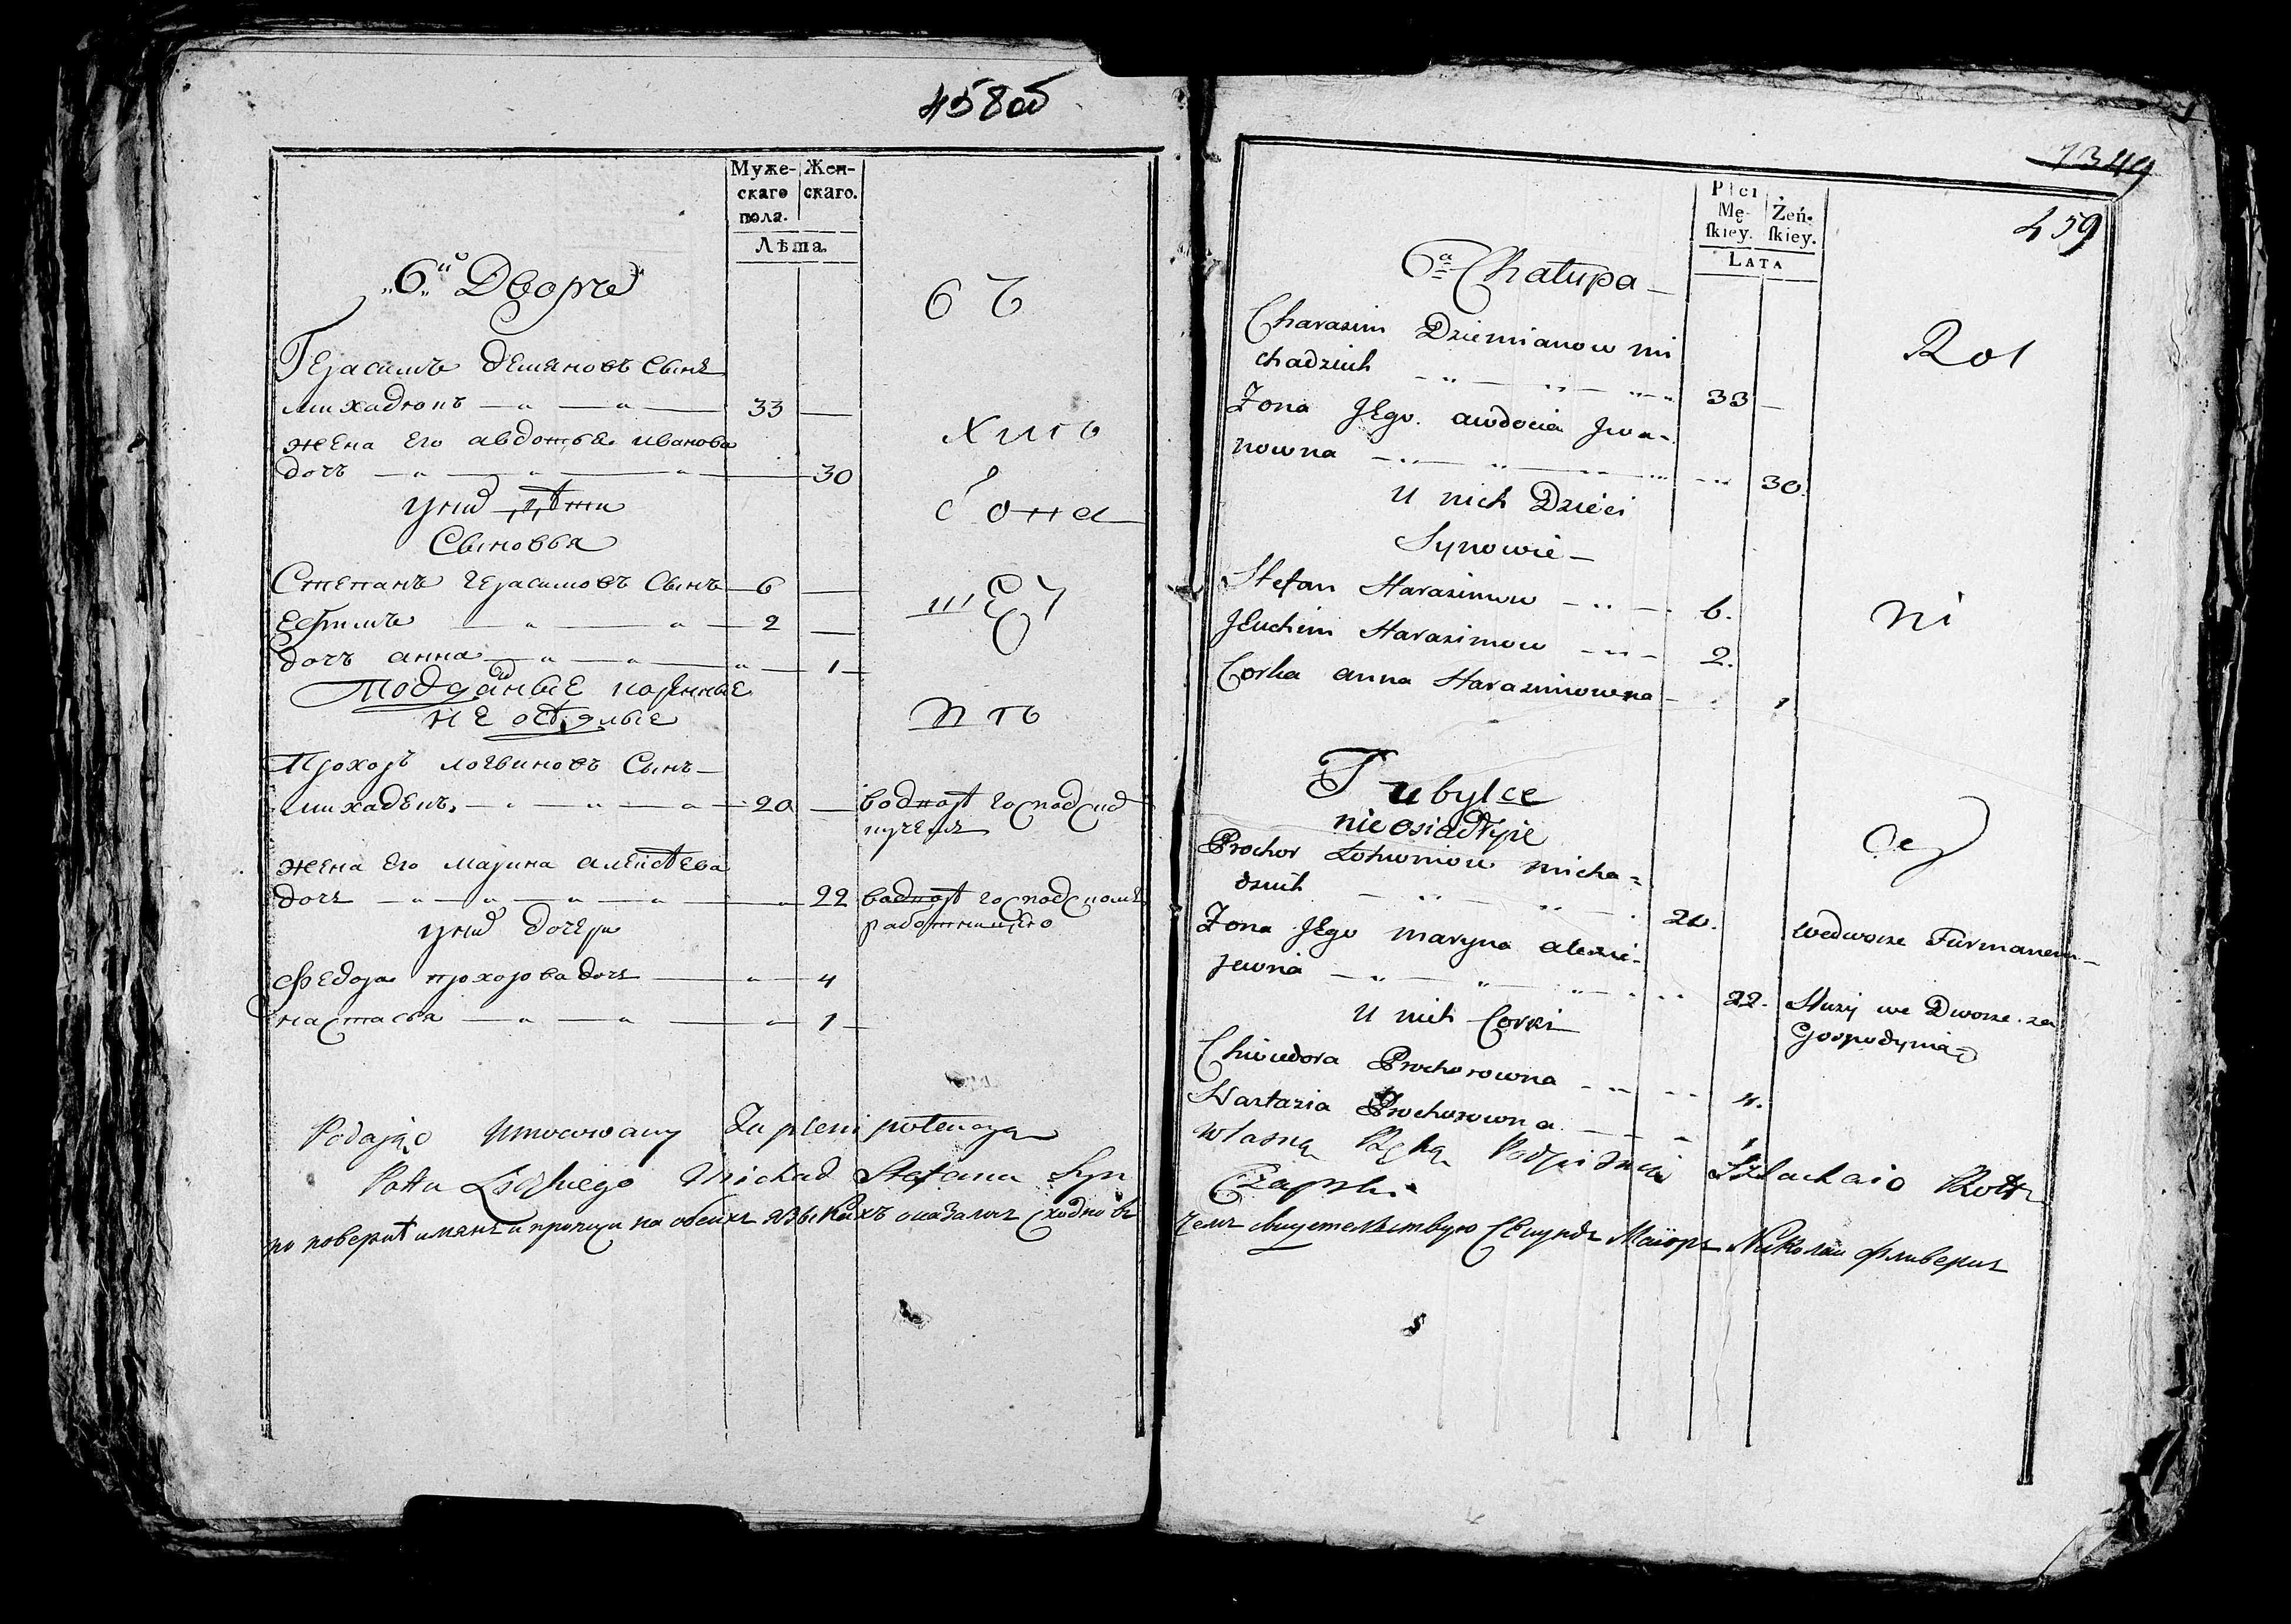 458об
Муже-
скаго
пола.
Жен-
скаго.
Лѣта.
6й Дворъ
Герасимъ демяновъ Сынъ
михадюнъ 33
жена его авдотья иванова
дочъ 30
у них дѣти
Сыновья
Степанъ герасимовъ Сынъ 6
Ефимъ 2
дочъ анна 1
Подданые коренные
не осѣдлые
Прохоръ логвиновъ Сынъ
20
жена его марина алексѣева
дочъ 22
у них дочери
Федора прохорова дочъ 4
настасья 1
Podając Umocowany Za plenipotencyą
Michał Stefana Syn
по поверкѣ имянъ и прочаго на обеихъ языкахъ оказалось сходно въ
1344
459
Płci
Mę-
ſkiey.
Żeń-
ſkiey.
LATA
6a Chałupa
Charasim Dziemianow mi
chadziuk 33
Żona JEgo awdocia Jwa-
nowna 30
U nich Dzieci
Synowie
Stefan Harasimow 6.
JEuchim Harasimow 2.
Corka anna Harasimowna 1
Rol
ni
cy
Tubylce
nieosiadłyie
Prochor Łohwinow micha=
dziuk 20.
we dworze Furmanem
Żona JEgo maryna alexie-
jewna 22.
Służy we Dworze za
Gospodynią
U nich Corki
Chwiedora Prochorowna 4.
Nastazia Prochorowna 1
własną Ręką Podpisuię Szlachcic
Czapski
чемъ свидетельствую Секундъ Маіоръ Николай